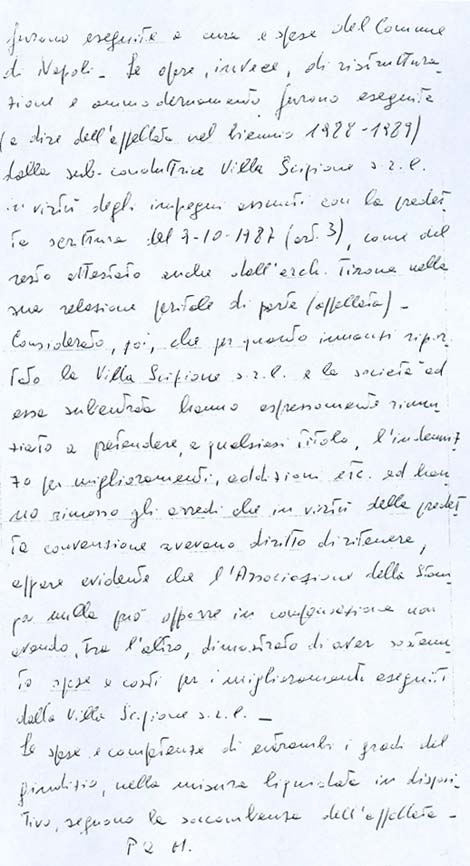 furono eseguite a cura e spese del Comune
di Napoli - Le opere, invece, di ristruttura=
zione e ammodernamento furono eseguite
(a dire dell'appellata nel biennio 1988-1989)
dalla sub-conduttrice Villa Scipione s.r.l.
in virtù degli impegni assunti con la predet
ta scrittura del 7-10-1987 (art. 3), come del
resto attestato anche dall'arch. Tirone nella
sua relazione peritale di parte (appellata) -
Considerato, poi, che per quanto innanzi ripor
tato la Villa Scipione s.r.l. e la società ad
essa subentrata hanno espressamente rinun
ziato a pretendere, a qualsiasi titolo, l'indenniz
zo per miglioramenti, addizioni etc. ed han
no rimosso gli arredi che in virtù della predet
ta convenzione avevano diritto di ritenere,
appare evidente che l'Associazione della Stam
pa nulla può opporre in compensazione non
avendo, tra l'altro, dimostrato di aver sostenu
to spese e costi per i miglioramenti eseguiti
dalla Villa Scipione s.r.l. -
Le spese e competenze di entrambi i gradi del
giudizio, nella misura liquidata in disposi
tivo, seguono la soccombenza dell'appellata -
P Q M.